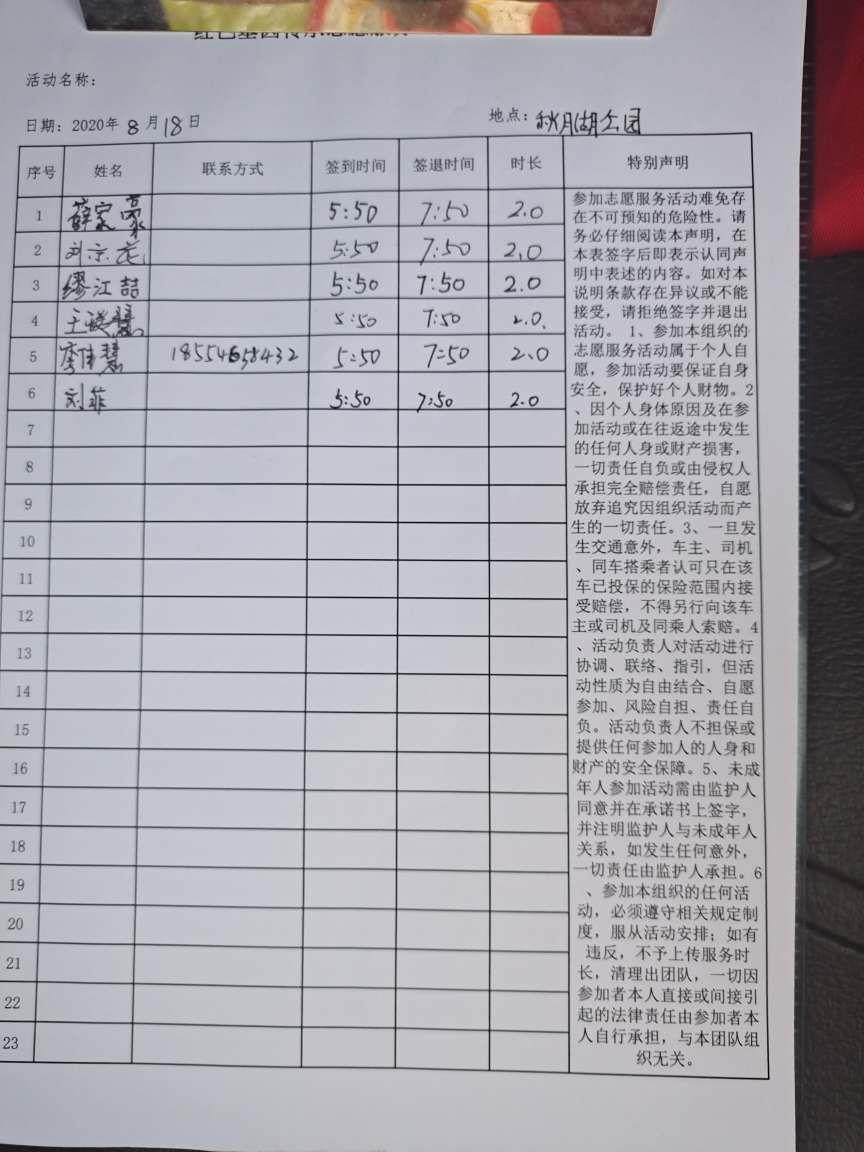 活动名称：
日期：2020年8月18日 地点：秋月湖公园
序号 姓名 联系方式 签到时间 签退时间 时长 特别声明
1 薛家豪 5:50 7:50 2.0
2 刘京花 5:50 7:50 2.0
3 缪江喆 5:50 7:50 2.0
4 王 5:50 7:50 2.0
5 李佳慧 18554658432 5:50 7:50 2.0
6 刘菲 5:50 7:50 2.0
7
8
9
10
11
12
13
14
15
16
17
18
19
20
21
22
23
参加志愿服务活动难免存
在不可预知的危险性。请
务必仔细阅读本声明，在
本表签字后即表示认同声
明中表述的内容。如对本
说明条款存在异议或不能
接受，请拒绝签字并退出
活动。 1、参加本组织的
志愿服务活动属于个人自
愿，参加活动要保证自身
安全，保护好个人财物。2
、因个人身体原因及在参
加活动或在往返途中发生
的任何人身或财产损害，
一切责任自负或由侵权人
承担完全赔偿责任，自愿
放弃追究因组织活动而产
生的一切责任。3、一旦发
生交通意外，车主、司机
、同车搭乘者认可只在该
车已投保的保险范围内接
受赔偿，不得另行向该车
主或司机及同乘人索赔。4
、活动负责人对活动进行
协调、联络、指引，但活
动性质为自由结合、自愿
参加、风险自担、责任自
负。活动负责人不担保或
提供任何参加人的人身和
财产的安全保障。5、未成
年人参加活动需由监护人
同意并在承诺书上签字，
并注明监护人与未成年人
关系，如发生任何意外，
一切责任由监护人承担。6
、参加本组织的任何活
动，必须遵守相关规定制
度，服从活动安排；如有
违反，不予上传服务时
长，清理出团队，一切因
参加者本人直接或间接引
起的法律责任由参加者本
人自行承担，与本团队组
织无关。